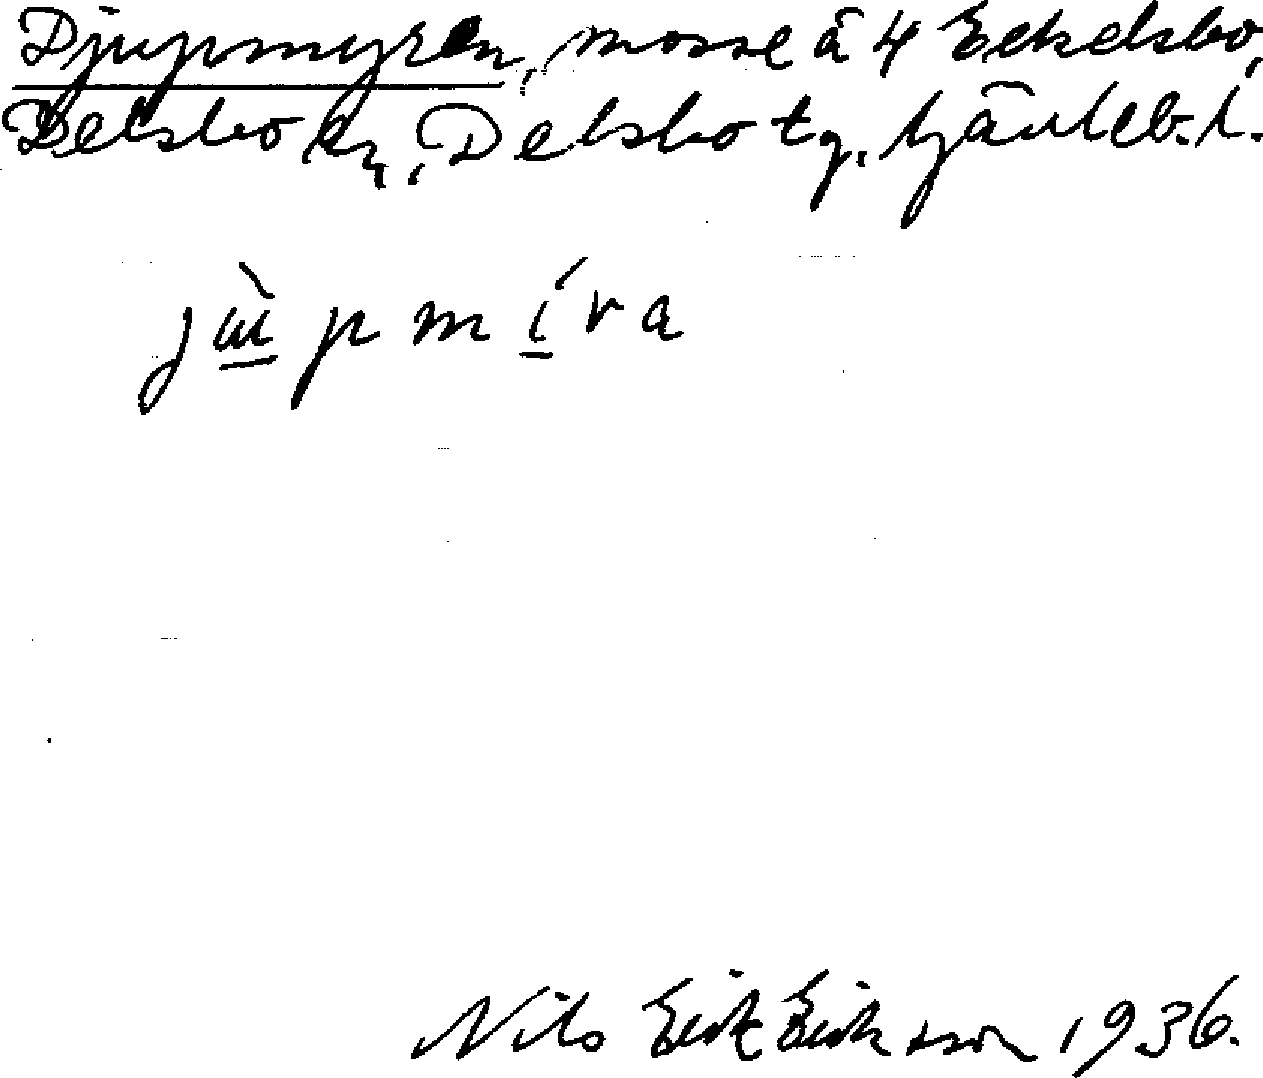 Djupmyren, mosse å 4 Eckelsbo,
Delsbo sn, Delsbo tg. Gävleb. l.
jùpmíra
Nils Erik Eriksson 1936.